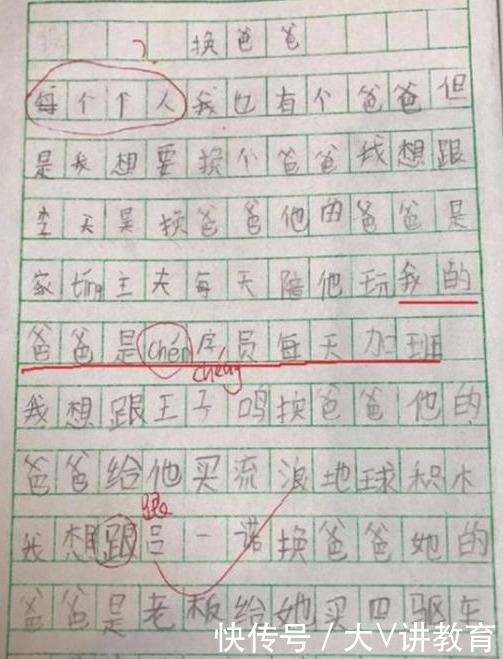 换爸爸
每个个人我也有个爸爸但
是我想要换个爸爸我想跟
李天昊换爸爸他的爸爸是
家tíng主夫每天陪他玩我的
爸爸是chén序员每天加班
chéng
我想跟王子鸣换爸爸他的
爸爸给他买流浪地球积木
跟
我想跟吕一诺换爸爸她的
爸爸是老板给她买四驱车
快传号/大V讲教育